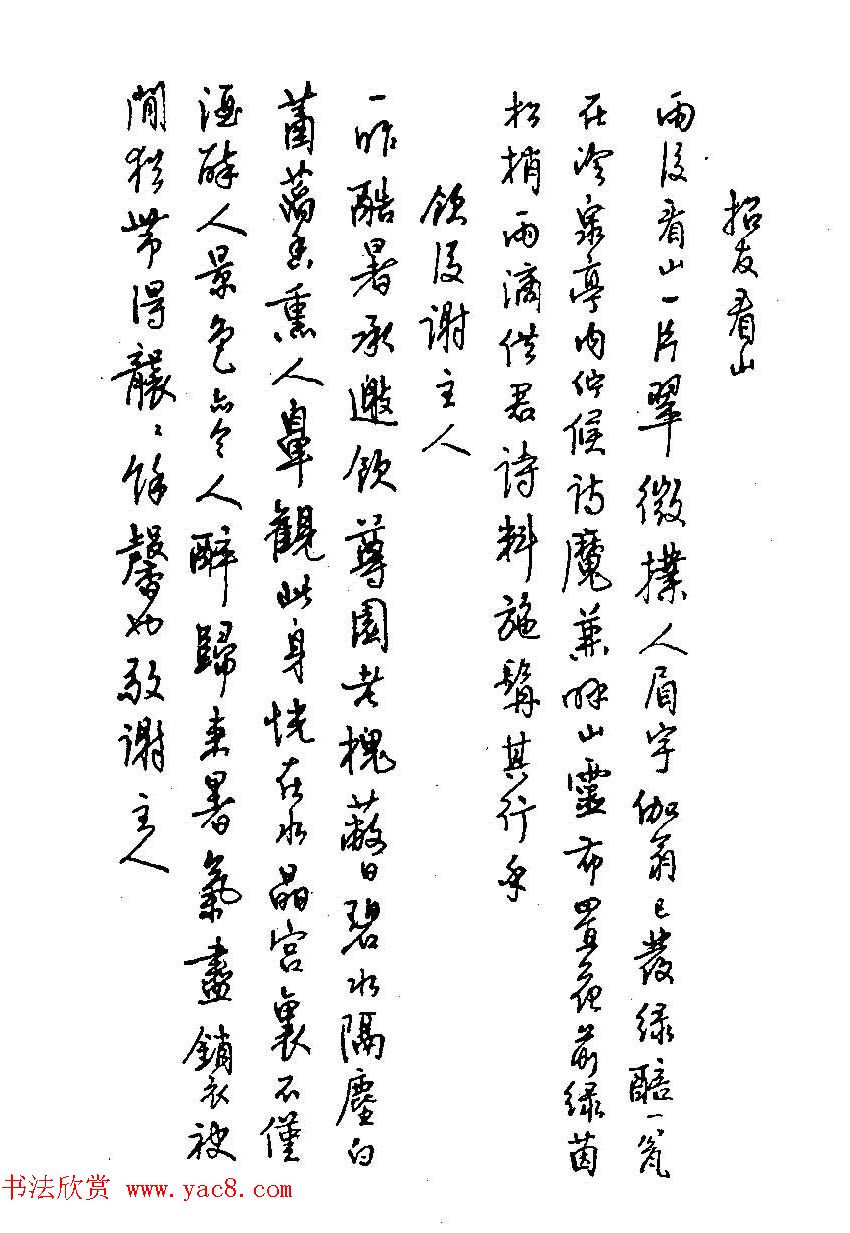 招友看山
雨後看山一片翠微撲人眉宇伽翁已發綠醅一瓮
在冷泉亭内佇候詩魔兼呼山靈布置花前綠茵
松梢雨滴供君詩料其行乎
飲後謝主人
一昨酷暑承邀飲尊園老槐蔽日碧水隔塵白
菡萏香熏人鼻觀此身恍在水晶宮裏不僅
酒醉人景色亦令人醉歸来暑氣盡銷衣袂
間猶帶得襲〻餘馨也敬謝主人
书法欣赏 www.yac8.com